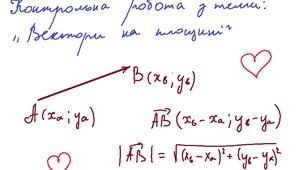 Контрольна робота з теми:
„Вектори на площині"
B(xв; yв)
A(xа; yа)
AB(xв-xа; yв-yа)
|AB| = √(xв-xа)²+(yв-yа)²